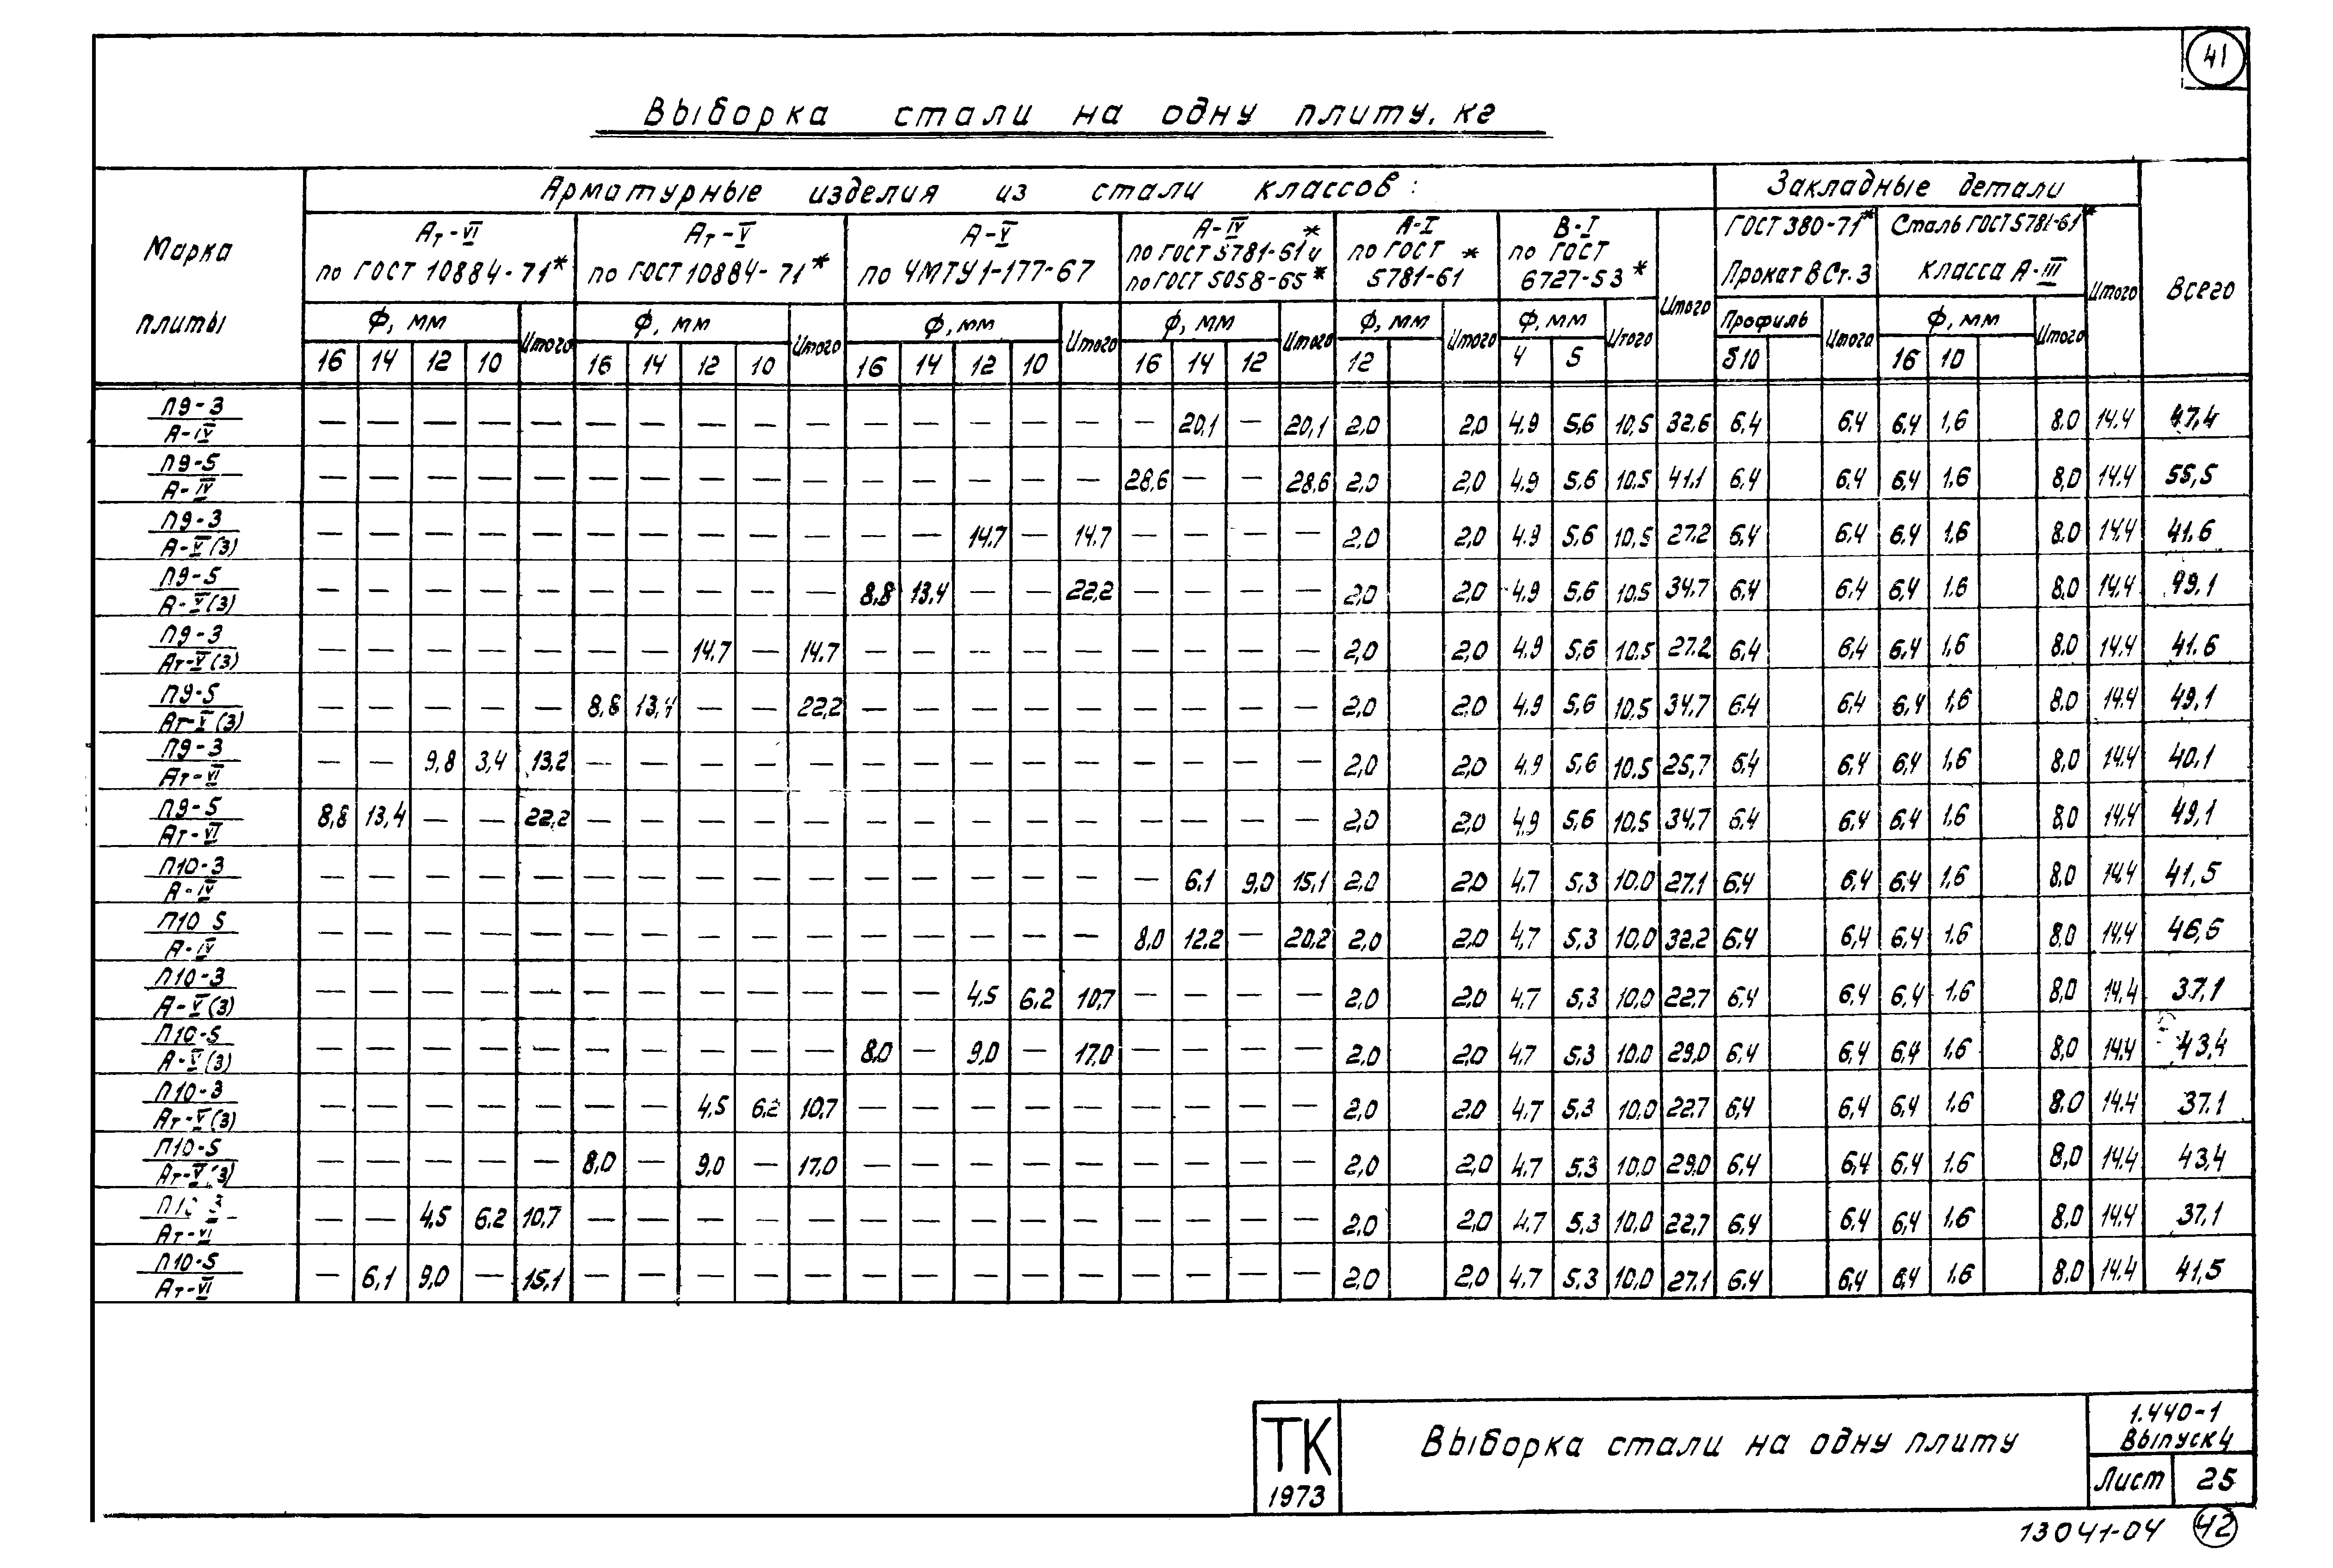 41
Выборка стали на одну плиту, кг
Марка плиты
Арматурные изделия из стали классов:
Закладные детали
Всего
Ат-VI по ГОСТ 10884-71*
Ат-V по ГОСТ 10884-71*
А-V по ЧМТУ 1-177-67
А-IV по ГОСТ 5781-61* и по ГОСТ 5058-65*
А-I по ГОСТ 5781-61*
В-I по ГОСТ 6727-53*
Итого
ГОСТ 380-71* Прокат ВСт.3
Сталь ГОСТ 5781-61* класса А-III
Итого
Ф, мм Итого Ф, мм Итого Ф, мм Итого Ф, мм Итого Ф, мм Итого Ф, мм Итого Профиль Итого Ф, мм Итого
16 14 12 10 16 14 12 10 16 14 12 10 16 14 12 12 4 5 δ10 16 10
П9-3 А-IV — — — — — — — — — — — — — — — — 20,1 — 20,1 2,0 2,0 4.9 5,6 10,5 32,6 6,4 6,4 6,4 1,6 8.0 14.4 47,4
П9-5 А-IV — — — — — — — — — — — — — — — 28,6 — — 28,6 2,0 2,0 4.9 5,6 10.5 41.1 6,4 6,4 6,4 1.6 8,0 14.4 55,5
П9-3 А-V(3) — — — — — — — — — — — — 14.7 — 14.7 — — — — 2,0 2,0 4.9 5,6 10,5 27.2 6,4 6,4 6,4 1,6 8.0 14.4 41.6
П9-5 А-V(3) — — — — — — — — — — 8,8 13,4 — — 22,2 — — — — 2,0 2,0 4.9 5,6 10.5 34.7 6,4 6,4 6,4 1.6 8,0 14.4 49,1
П9-3 Ат-V(3) — — — — — — — 14.7 — 14.7 — — — — — — — — — 2,0 2,0 4.9 5,6 10.5 27.2 6,4 6,4 6,4 1,6 8.0 14.4 41.6
П9-5 Ат-V(3) — — — — — 8,8 13,4 — — 22,2 — — — — — — — — — 2,0 2,0 4.9 5,6 10,5 34,7 6.4 6,4 6,4 1,6 8.0 14.4 49,1
П9-3 Ат-VI — — 9,8 3,4 13,2 — — — — — — — — — — — — — — 2,0 2,0 4.9 5,6 10.5 25,7 6,4 6,4 6,4 1,6 8,0 14.4 40,1
П9-5 Ат-VI 8,8 13,4 — — 22,2 — — — — — — — — — — — — — — 2,0 2,0 4.9 5,6 10,5 34,7 6.4 6,4 6,4 1.6 8,0 14.4 49,1
П10-3 А-IV — — — — — — — — — — — — — — — — 6.1 9,0 15,1 2,0 2,0 4.7 5,3 10.0 27.1 6,4 6,4 6,4 1,6 8,0 14.4 41,5
П10 5 А-IV — — — — — — — — — — — — — — — 8,0 12.2 — 20,2 2,0 2,0 4,7 5,3 10,0 32.2 6,4 6,4 6,4 1.6 8,0 14.4 46,6
П10-3 А-V(3) — — — — — — — — — — — — 4.5 6,2 10,7 — — — — 2,0 2,0 4.7 5,3 10,0 22.7 6,4 6,4 6,4 1.6 8,0 14.4 37,1
П10-5 А-V(3) — — — — — — — — — — 8,0 — 9,0 — 17,0 — — — — 2,0 2,0 4.7 5.3 10.0 29,0 6,4 6,4 6,4 1.6 8,0 14.4 43,4
П10-3 Ат-V(3) — — — — — — — 4,5 6,2 10,7 — — — — — — — — — 2,0 2.0 4.7 5.3 10,0 22.7 6,4 6,4 6,4 1.6 8.0 14.4 37.1
П10-5 Ат-V(3) — — — — — 8,0 — 9,0 — 17,0 — — — — — — — — — 2,0 2,0 4.7 5.3 10.0 29.0 6,4 6,4 6,4 1.6 8,0 14.4 43,4
Ат-VI — — 4,5 6.2 10,7 — — — — — — — — — — — — — — 2,0 2,0 4.7 5,3 10,0 22,7 6,4 6,4 6,4 1.6 8,0 14.4 37,1
П10-5 Ат-VI — 6,1 9,0 — 15,1 — — — — — — — — — — — — — — 2,0 2,0 4.7 5,3 10.0 27.1 6,4 6,4 6,4 1.6 8,0 14.4 41,5
ТК
1973
Выборка стали на одну плиту
1.440-1
Выпуск 4
Лист 25
13041-04 42